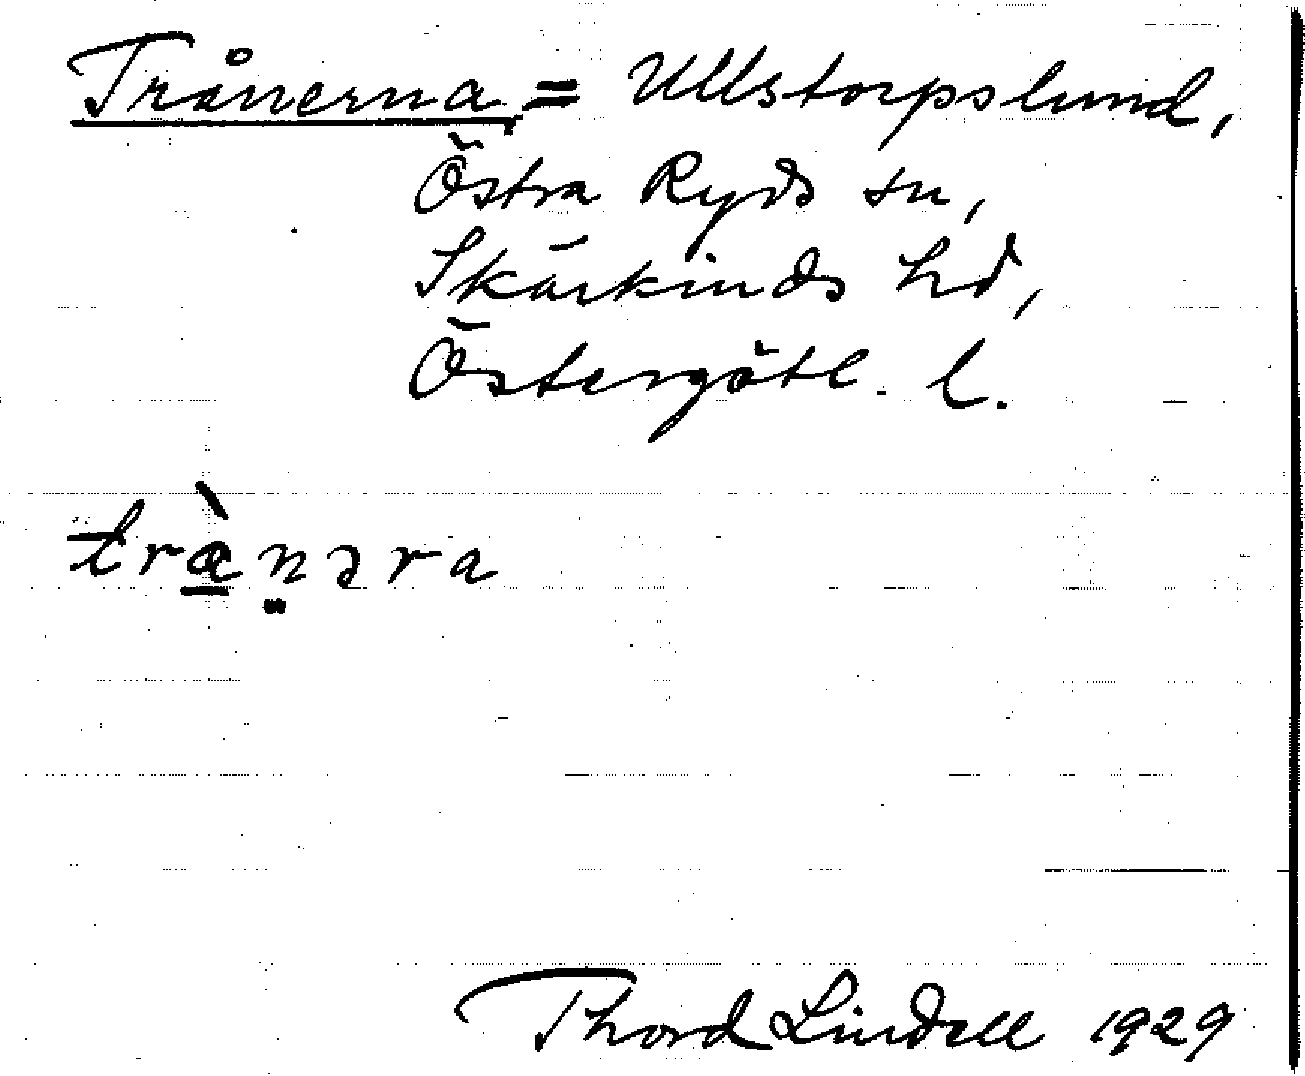 Trånerna = Ullstorpslund,
Östra Ryds sn,
Skärkinds hd,
Östergötl. l.
trànəra
Thord Lindell 1929